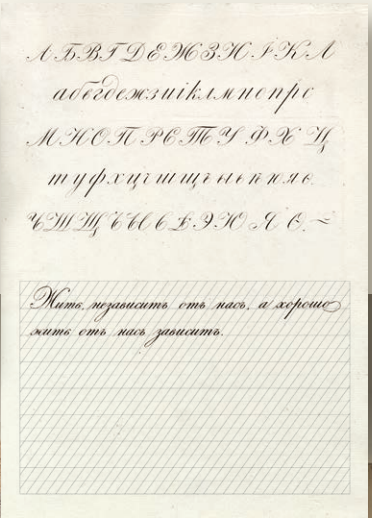 А Б В Г Д Е Ж З И І К Л
абвгдежзиіклмнопрс
М Н О П Р С Т У Ф Х Ц
туфхцчшщъыьѣюяѳ
Ч Ш Щ Ъ Ы Ь Ѣ Э Ю Я Ѳ
Жить, независитъ отъ насъ, а хорошо
жить отъ насъ зависитъ.